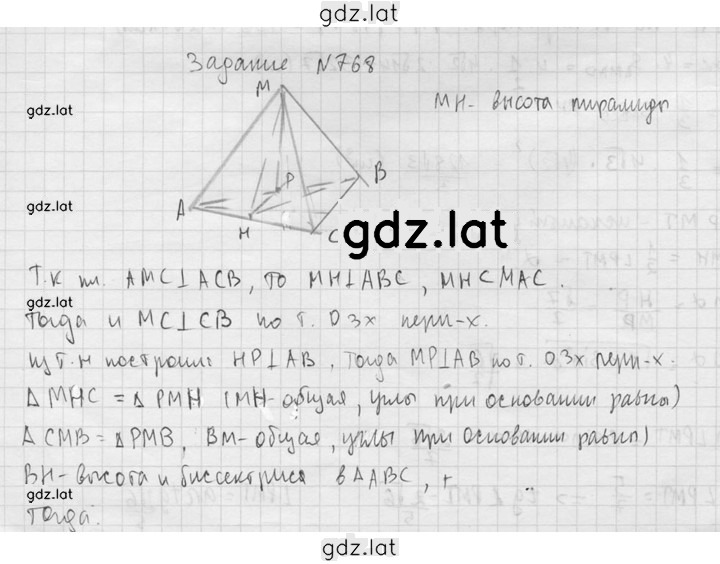 gdz.lat
Задание N768
M
MH - высота пирамиды
gdz.lat
B
P
gdz.lat
A
H
C
gdz.lat
Т.к пл. AMC⊥ACB, то MH⊥ABC, MH⊂MAC.
gdz.lat
Тогда и MC⊥CB по т. О 3х перп-х.
из т. H построим HP⊥AB, тогда MP⊥AB по т. О 3х перп-х.
△MHC = △PMH (MH-общая, углы при основании равны)
△CMB = △PMB, BM-общая, углы при основании равны)
BH-высота и биссектриса в △ABC, т
gdz.lat
Тогда.
gdz.lat